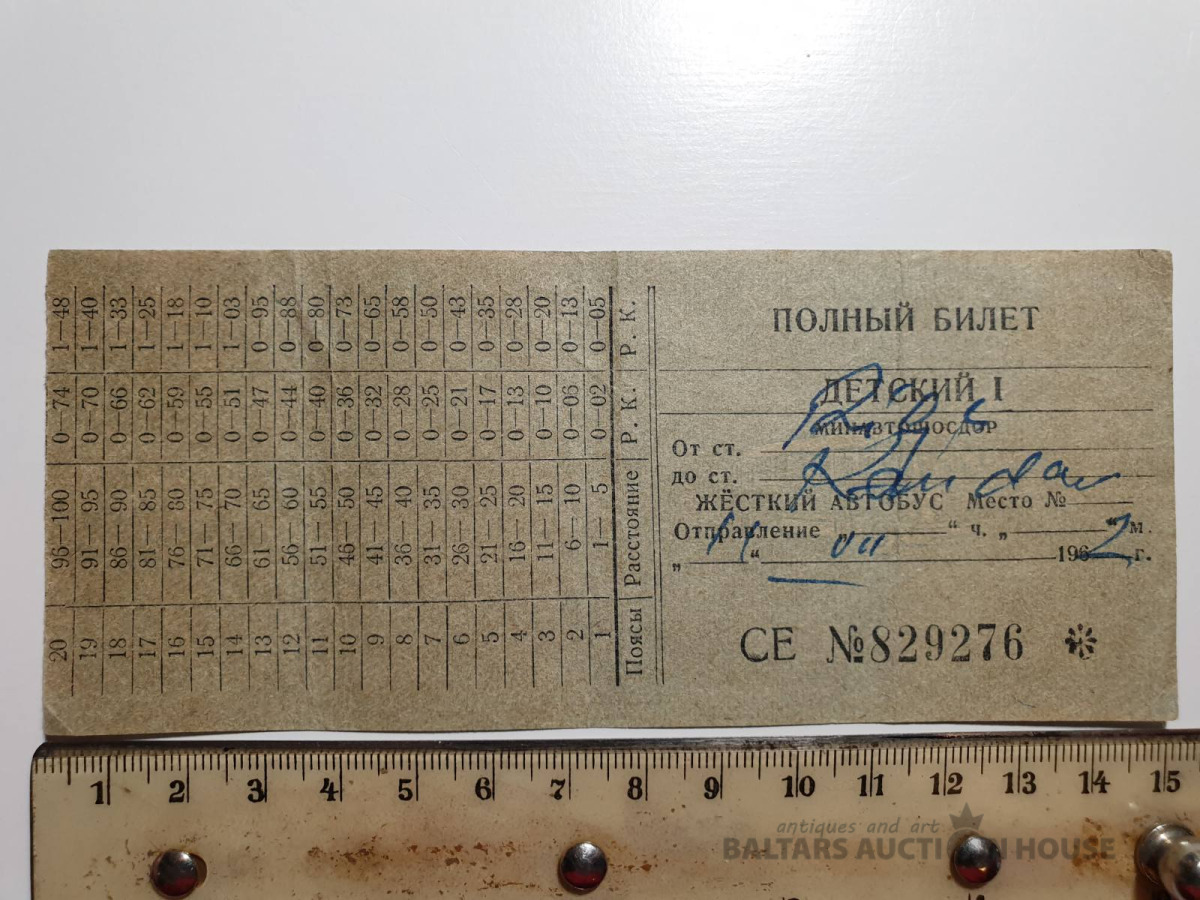 20 96—100 0—74 1—48
19 91—95 0—70 1—40
18 86—90 0—66 1—33
17 81—85 0—62 1—25
16 76—80 0—59 1—18
15 71—75 0—55 1 10
14 66—70 0—51 1—03
13 61—65 0—47 0—95
12 56—60 0—44 0—88
11 51—55 0—40 0—80
10 46—50 0—36 0—73
9 41—45 0—32 0—65
8 36—40 0—28 0—58
7 31—35 0—25 0—50
6 26—30 0—21 0—43
5 21—25 0—17 0—35
4 16—20 0—13 0—28
3 11—15 0—10 0—20
2 6—10 0—06 0—13
1 1—5 0—02 0—05
Поясы Расстояние Р. К. Р. К.
ПОЛНЫЙ БИЛЕТ
ДЕТСКИЙ I
МИНАВТОШОСДОР
От ст.
до ст. Kandav
ЖЁСТКИЙ АВТОБУС Место №
Отправление “ ч. „ “ м.
„ “ VII 1962 г.
СЕ №829276 *
1 2 3 4 5 6 7 8 9 10 11 12 13 14 15
antiques and art
BALTARS AUCTION HOUSE